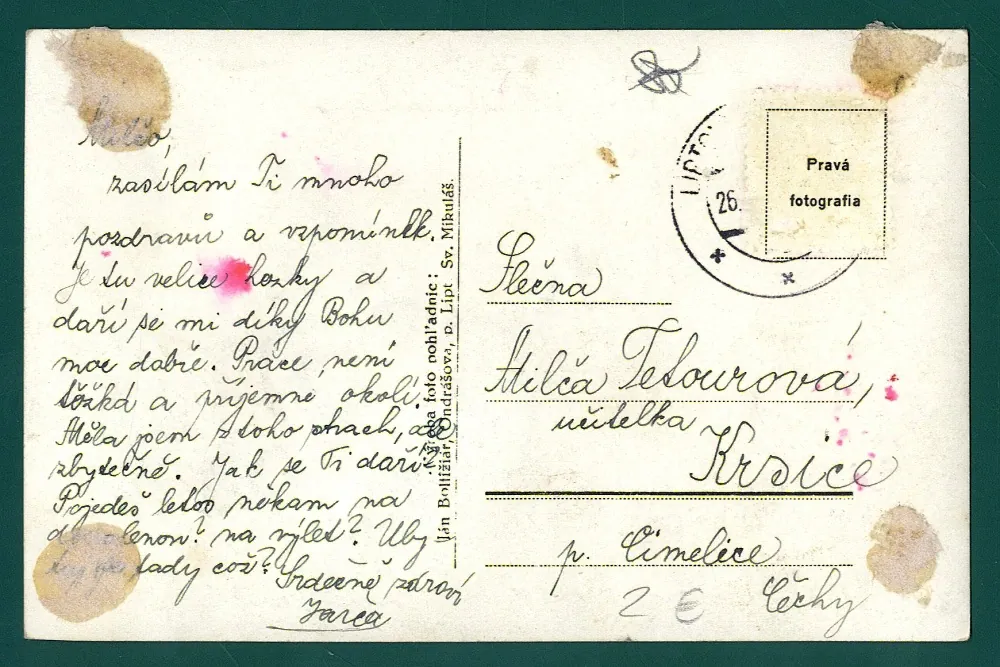 Milčo,
zasílám Ti mnoho
pozdravů a vzpomínek.
Je tu velice hezky a
daří se mi díky Bohu
moc dobře. Práce není
těžká a příjemné okolí.
Měla jsem z toho strach, ale
zbytečně. Jak se Ti daří?
Pojedeš letos někam na
dovolenou? na výlet?
tady což? Srdečně zdraví
Jarca
Výroba foto pohľadnic:
Ján Boltižiar, Ondrášova, p. Lipt Sv. Mikuláš.
LIPTO
26.
Pravá
fotografia
Slečna
Milča Tetourová,
učitelka
Krsice
p. Čimelice
Čechy
2 €